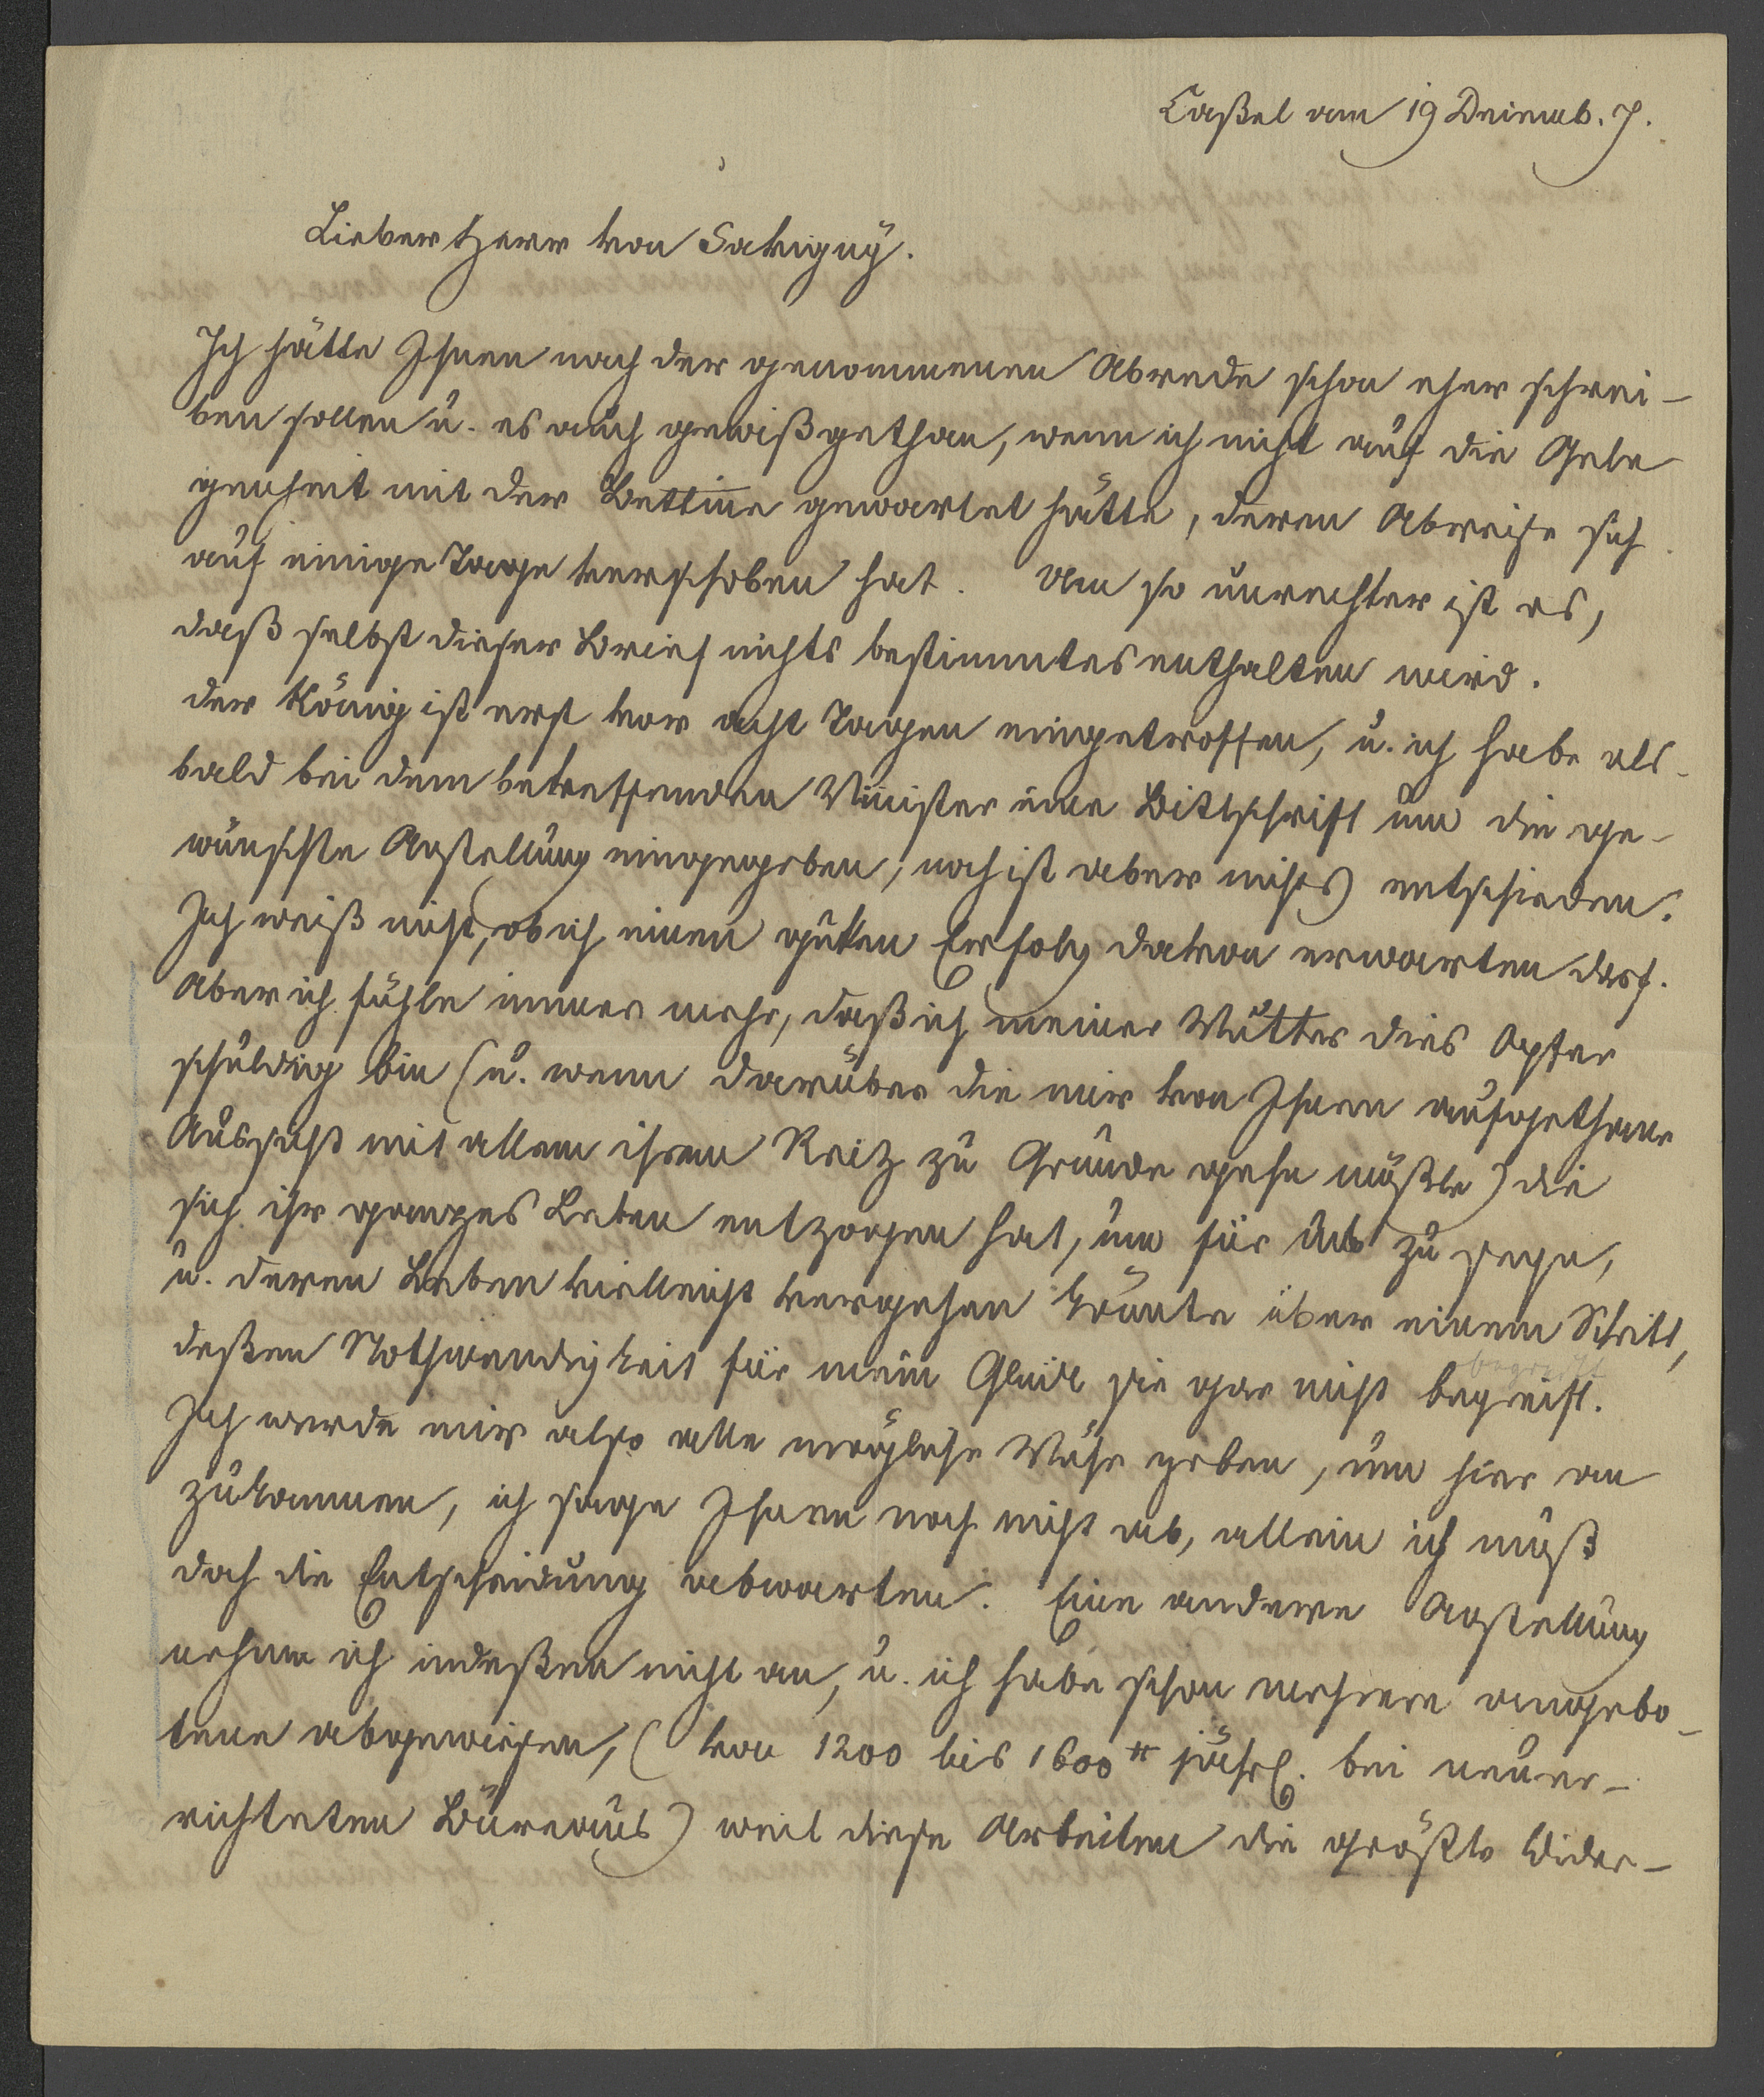 Caßel am 19 Decemb. 7.
Lieber Herr von Savigny.
Ich hätte Ihnen nach der genommenen Abrede schon eher schrei-
ben sollen u. es auch gewiß gethan, wenn ich nicht auf die Gele
genheit mit der Bettine gewartet hätte, deren Abreise sich
auf einige Tage verschoben hat. Um so unrechter ist es,
daß selbst dieser Brief nichts bestimmtes enthalten wird.
Der König ist erst vor acht Tagen eingetroffen, u. ich habe als-
bald bei dem betreffenden Minister eine Bittschrift um die ge-
wünschte Anstellung eingegeben, noch ist aber nichts entschieden.
Ich weiß nicht, ob ich einen guten Erfolg davon erwarten darf.
Aber ich fühle immer mehr, daß ich meiner Mutter dies Opfer
schuldig bin (u. wenn darüber die mir von Ihnen aufgethane
Aussicht mit allem ihrem Reitz zu Grunde gehn müßte) die
sich ihr ganzes Leben entzogen hat, um für uns zu sorgen,
u. deren Leben vielleicht vergehen könnte über einem Schritt,
deßen Nothwendigkeit für mein Glück sie gar nicht begreift.
begreift
Ich werde mir also alle mögliche Mühe geben, um hier an
zukommen, ich sage Ihnen noch nicht ab, allein ich muß
doch die Entscheidung abwarten. Eine andere Anstellung
nehme ich indeßen nicht an, u. ich habe schon mehrere angebo-
tene abgewiesen, (von 1200 bis 1600 jährl. bei neuer-
richteten Büreaus) weil diese Arbeiten die größte Wider-